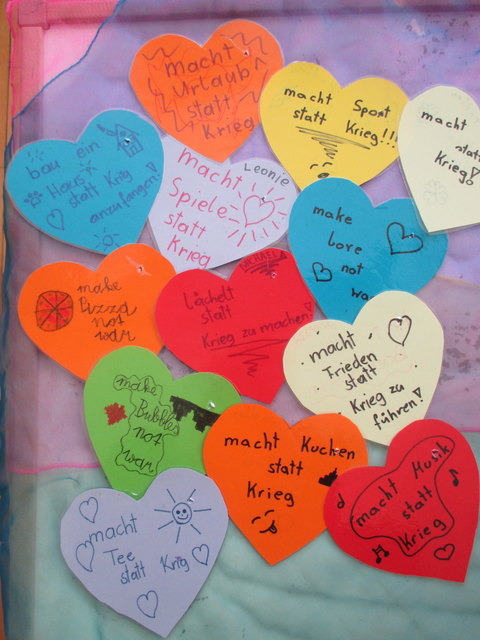 macht
Urlaub
statt
Krieg
macht Sport
statt Krieg!!!
macht
statt
Krieg!
bau ein
Haus
statt Krig
anzufangen!
Leonie
macht
Spiele
statt
Krieg
make
love
not
wa
make
Pizza
not
war
MICHAELA
Lächelt
statt
Krieg zu machen!
macht
Frieden
statt
Krieg zu
führen!
make
Bubbles
not
war
macht Kuchen
statt
Krieg
macht Musik
statt
Krieg
macht
Tee
statt Krig